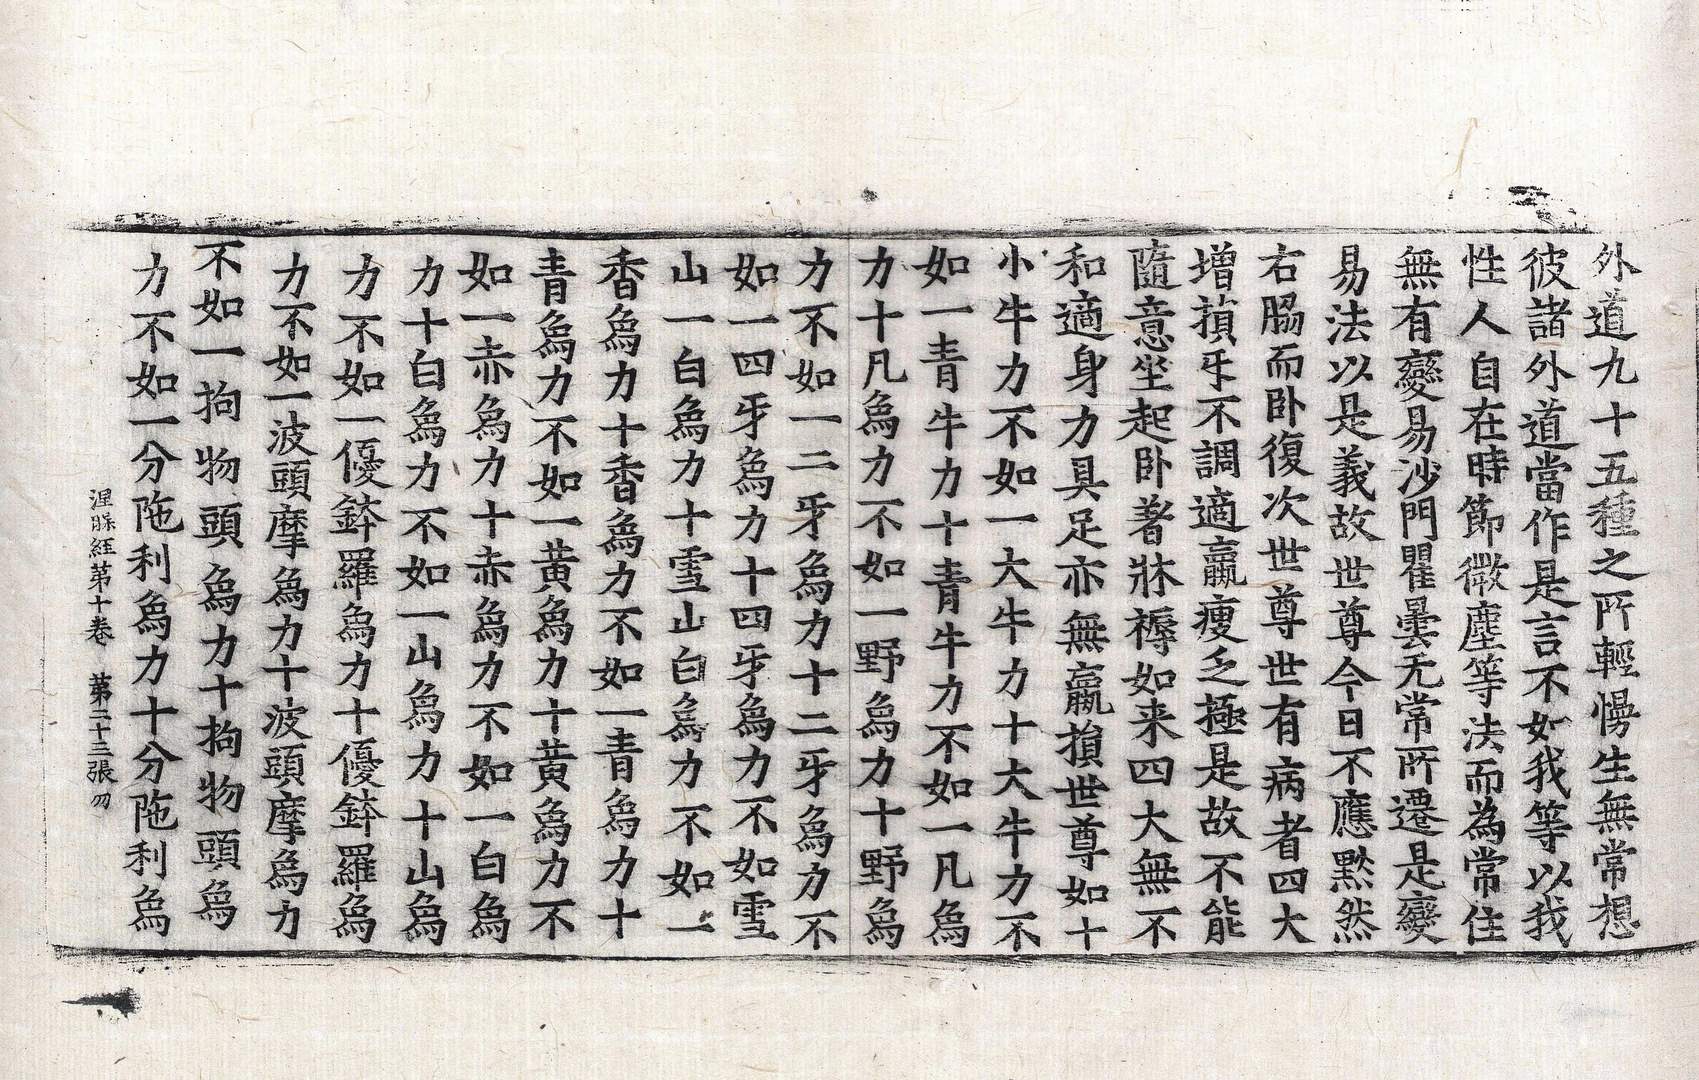 外道九十五種之所輕慢生無常想
彼諸外道當作是言不如我等以我
性人自在時節微塵等法而為常住
無有變易沙門瞿曇无常所遷是變
易法以是義故世尊今日不應黙然
右脇而卧復次世尊世有病者四大
増損𤘅不調適羸瘦乏極是故不能
隨意坐起卧著牀褥如来四大無不
和適身力具足亦無羸損世尊如十
小牛力不如一大牛力十大牛力不
如一青牛力十青牛力不如一凡烏
力十凡烏力不如一野烏力十野烏
力不如一二牙烏力十二牙烏力不
如一四牙烏力十四牙烏力不如雪
山一白烏力十雪山白烏力不如一
香烏力十香烏力不如一青烏力十
青烏力不如一黄烏力十黄烏力不
如一赤烏力十赤烏力不如一白烏
力十白烏力不如一山烏力十山烏
力不如一優鉢羅烏力十優鉢羅烏
力不如一波頭摩烏力十波頭摩烏力
不如一拘物頭烏力十拘物頭烏
力不如一分陁利烏力十分陁利烏
涅槃経第十卷　第二十三張　勿